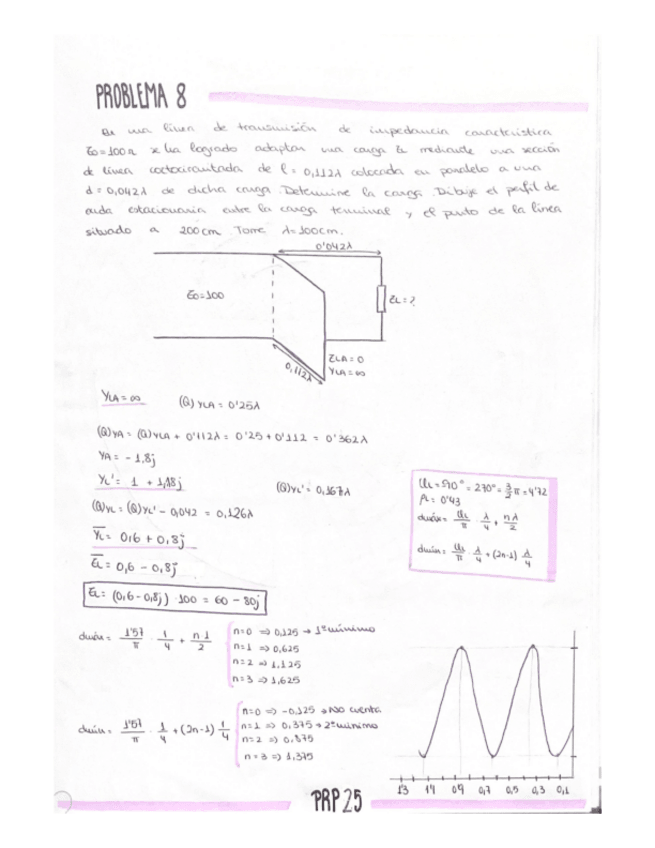 PROBLEMA 8
En una línea de transmisión de impedancia característica
Zo=100Ω se ha logrado adaptar una carga ZL mediante una sección
de línea cortocircuitada de l= 0,112λ colocada en paralelo a una
d=0,042λ de dicha carga. Determine la carga. Dibuje el perfil de
onda estacionaria entre la carga terminal y el punto de la línea
situado a 200cm. Tome λ=100cm.
0'042λ
Zo=100
ZL=?
0,112λ
ZLA=0
YLA=∞
YLA=∞
(Q)YLA = 0'25λ
(Q)YA = (Q)YLA + 0'112λ = 0'25+0'112 = 0'362λ
YA = -1,8j
YL' = 1 + 1,18j
(Q)YL' = 0,167λ
(Q)YL = (Q)YL' - 0,042 = 0,126λ
YL = 0,6 + 0,8j
ZL = 0,6 - 0,8j
ZL = (0,6-0,8j) · 100 = 60 - 80j
= 270° = 3/2 π = 4'72
= 0'43
π · λ/4 + nλ/2
π · λ/4 + (2n-1) λ/4
1'57/π · 1/4 + n·1/2
n=0 => 0,125 → 1º mínimo
n=1 => 0,625
n=2 => 1,125
n=3 => 1,625
dmín = 1'57/π · 1/4 + (2n-1) 1/4
n=0 => -0,125 → No cuenta
n=1 => 0,375 → 2º mínimo
n=2 => 0,875
n=3 => 1,375
0,9 0,7 0,5 0,3 0,1
PRP 25